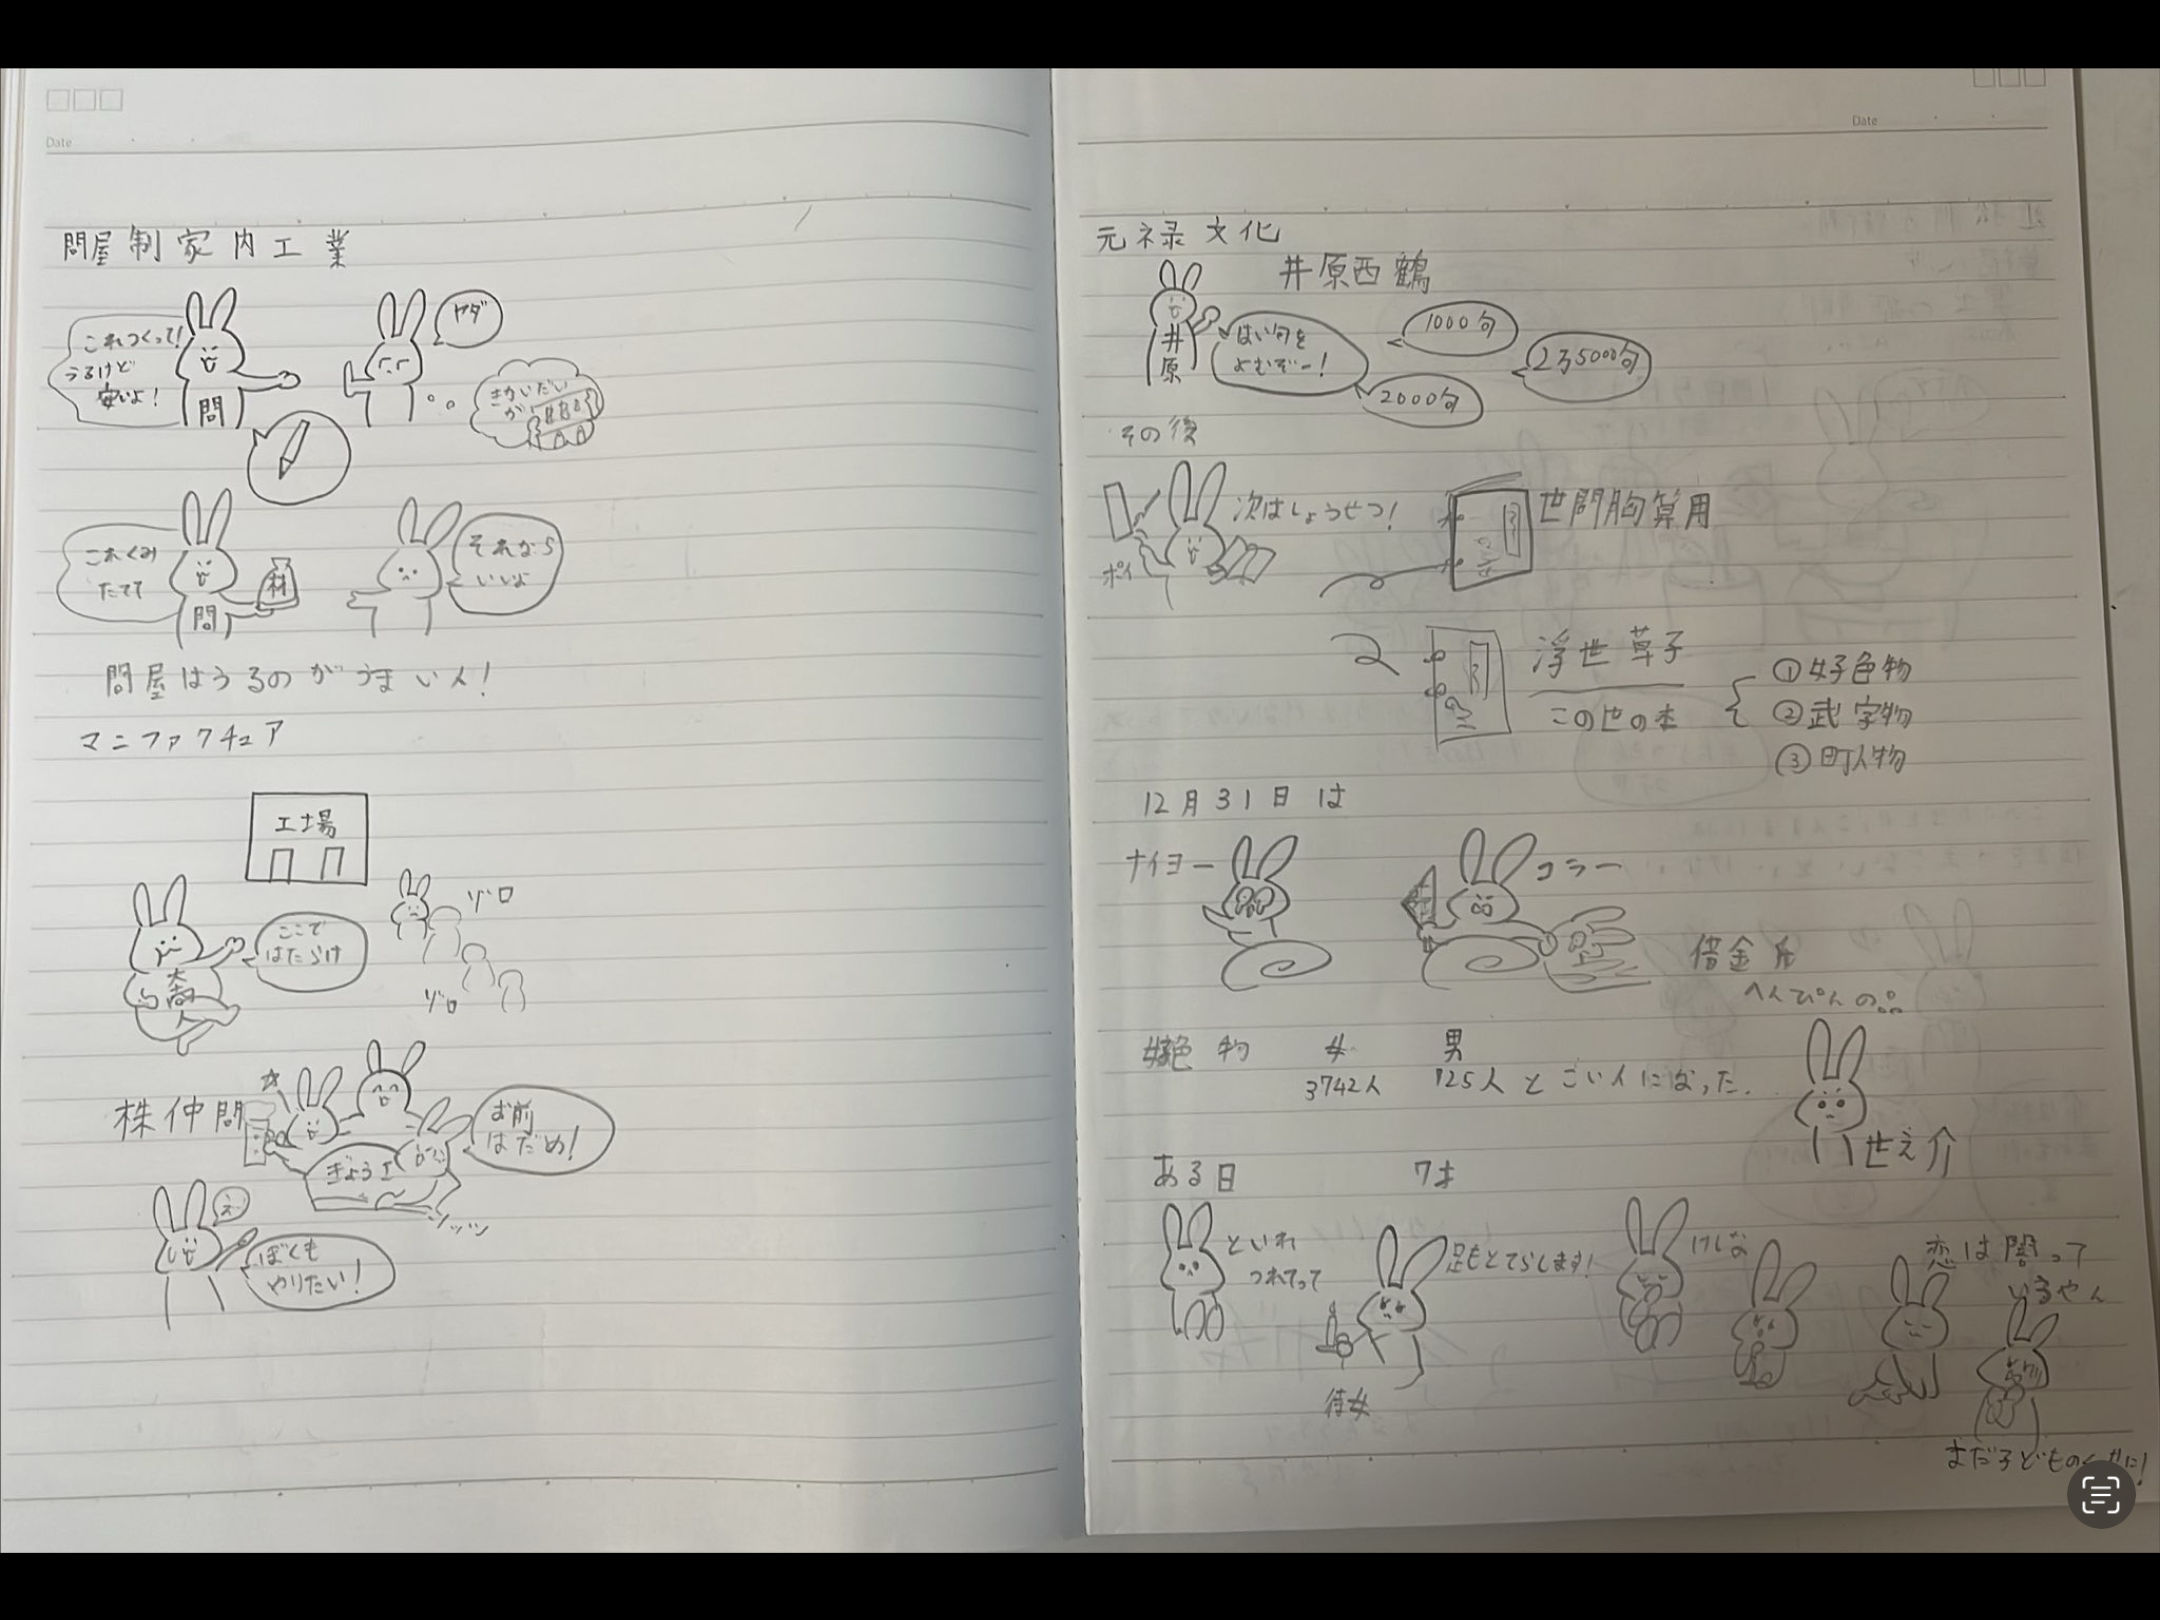 Date
問屋制家内工業
これつくって！
うるけど
安いよ！
問
ヤダ
きかいだい
が
これくみ
たてて
問
材
それなら
いいよ
問屋はうるのがうまい人！
マニファクチュア
工場
大商人
ここで
はたらけ
ゾロ
ゾロ
株仲間
ぎょうエ
お前
はだめ！
ぼくも
やりたい！
Date
元禄文化
井原西鶴
井原
はい句を
よむぞー！
1000句
2万5000句
2000句
その後
ポイ
次はしょうせつ！
世間胸算用
浮世草子
この世の本
①好色物
②武字物
③町人物
12月31日は
ナイヨー
コラー
借金
へんぴんの品
好色物 女 男
3742人 725人とこい人になった.
世之介
ある日 7才
といれ
つれてって
足もとてらします！
侍女
けしな
恋は闇って
いるやん
まだ子どものくせに！